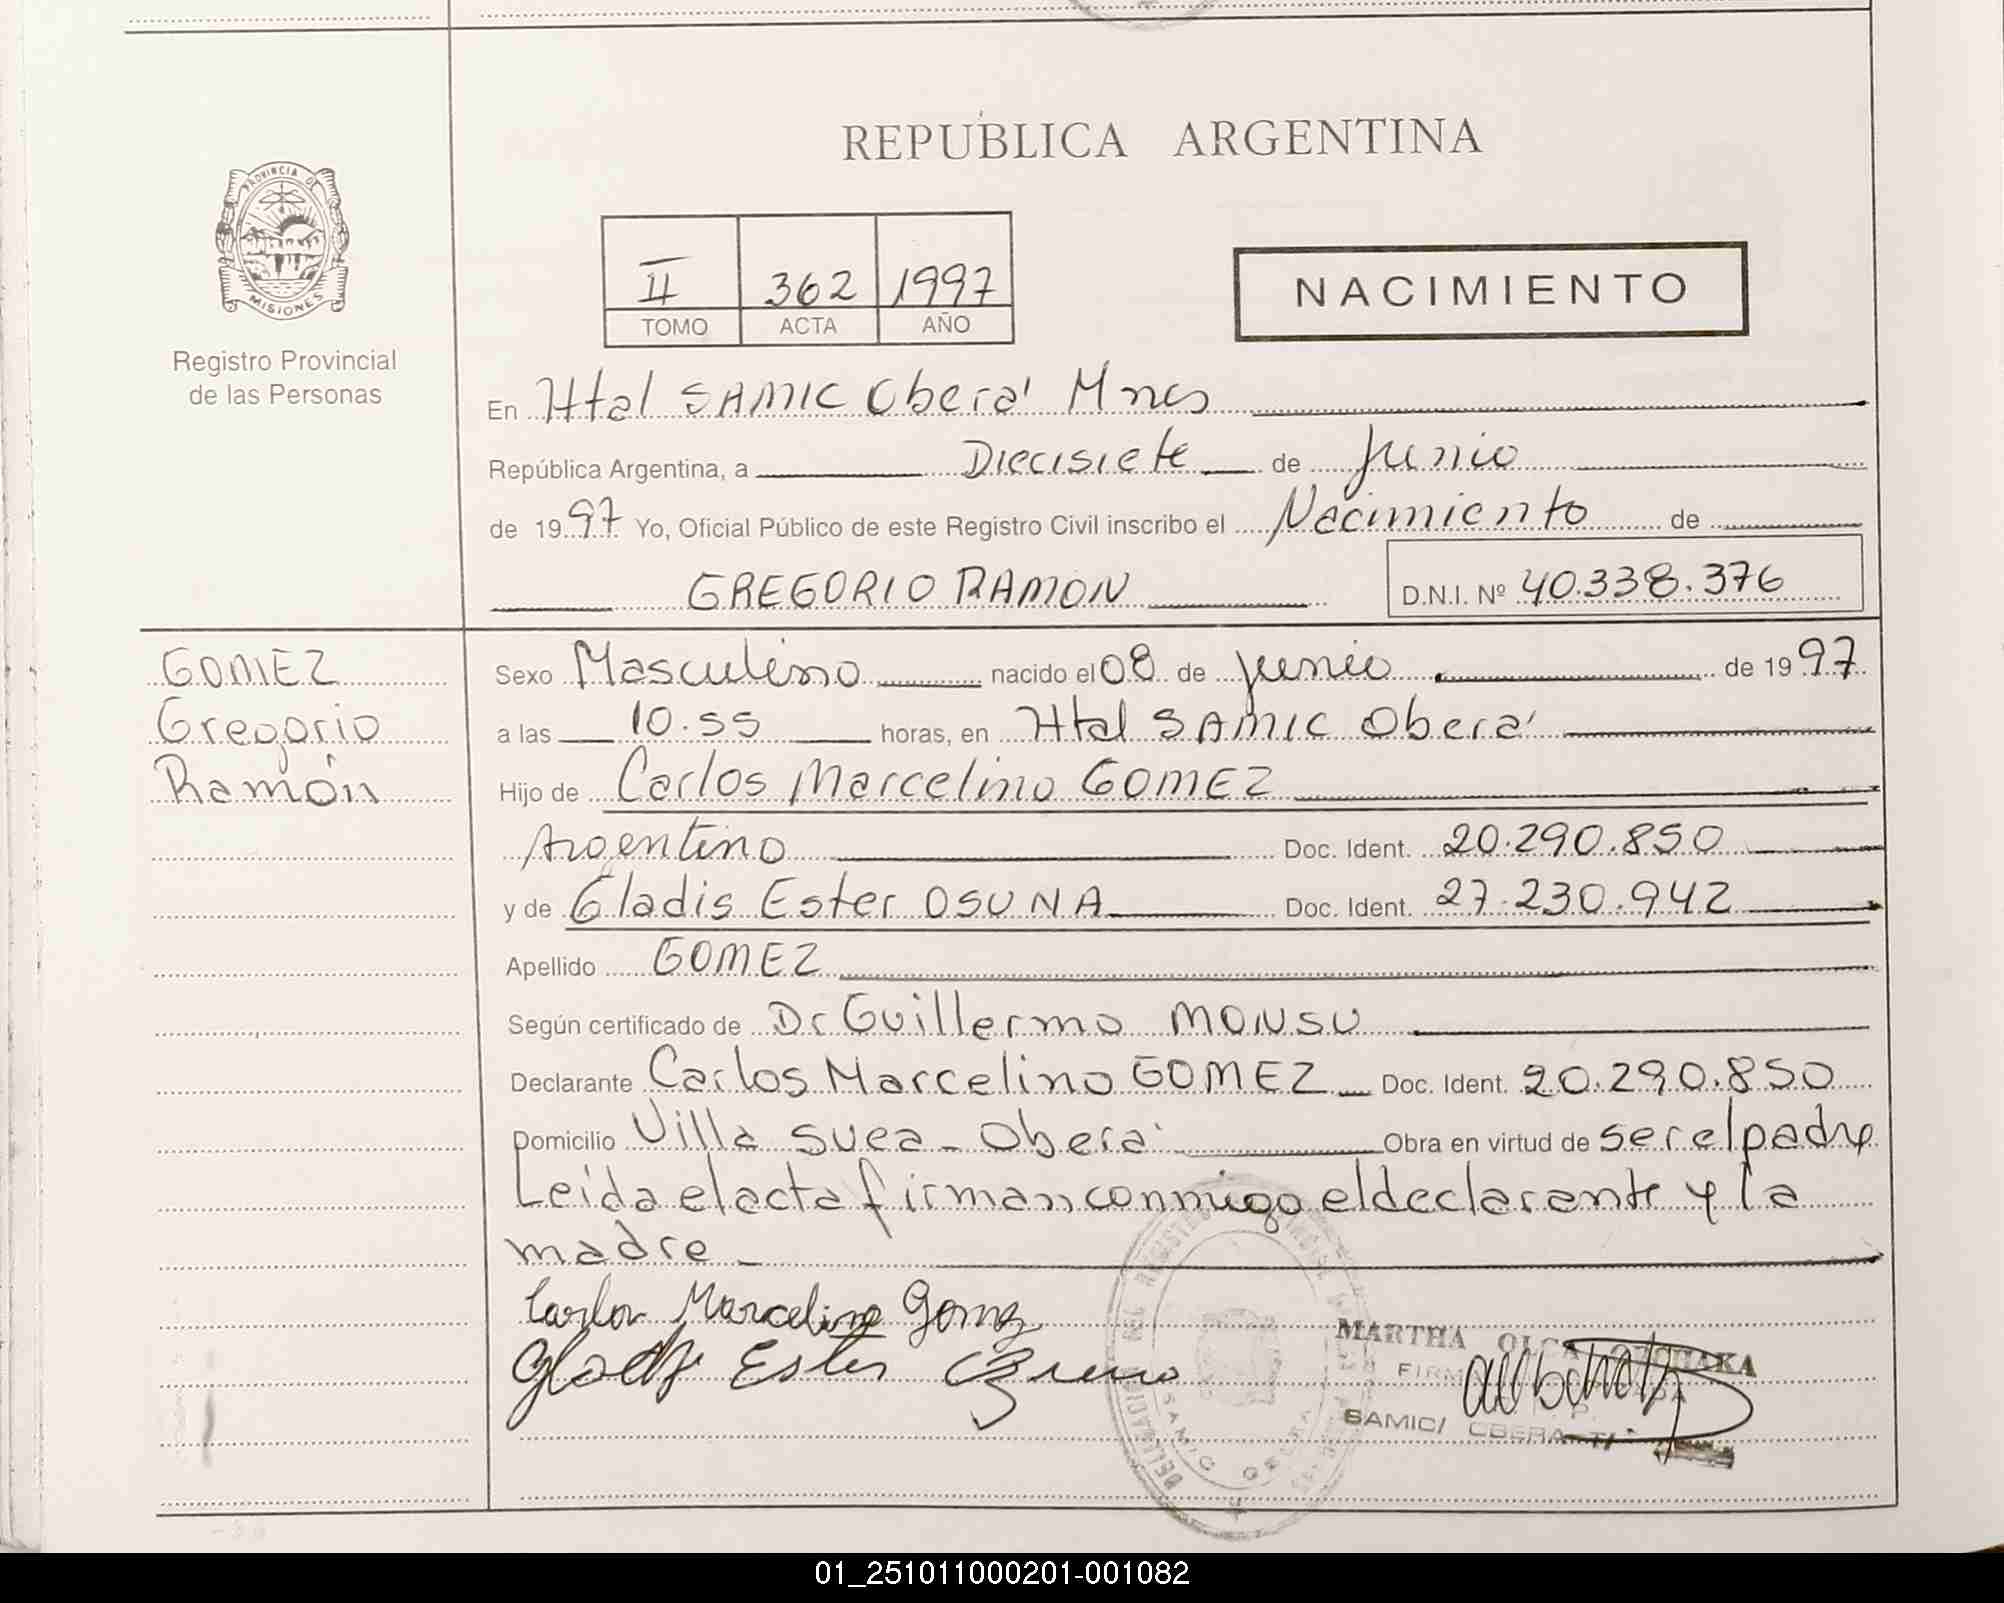 REPUBLICA ARGENTINA
PROVINCIA DE
MISIONES
Registro Provincial
de las Personas
II 362 1997
TOMO ACTA AÑO
NACIMIENTO
En Htal SAMIC Oberá Mnes
República Argentina, a Diecisiete de Junio
de 1997 Yo, Oficial Público de este Registro Civil inscribo el Nacimiento de
GREGORIO RAMON D.N.I. Nº 40.338.376
GOMEZ
Gregorio
Ramón
Sexo Masculino nacido el 08 de junio de 1997
a las 10.55 horas, en Htal SAMIC Oberá
Hijo de Carlos Marcelino GOMEZ
Argentino Doc. Ident. 20.290.850
y de Gladis Ester OSUNA Doc. Ident. 27.230.942
Apellido GOMEZ
Según certificado de Dr Guillermo MONSU
Declarante Carlos Marcelino GOMEZ Doc. Ident. 20.290.850
Domicilio Villa Suea - Oberá Obra en virtud de ser el padre
Leída el acta firman conmigo el declarante y la
madre
Carlos Marcelino Gomez
Ester
MARTHA OLGA
SAMIC/ OBERA
DELEGACIÓN DEL REGISTRO
SAMIC OBERA
01_251011000201-001082